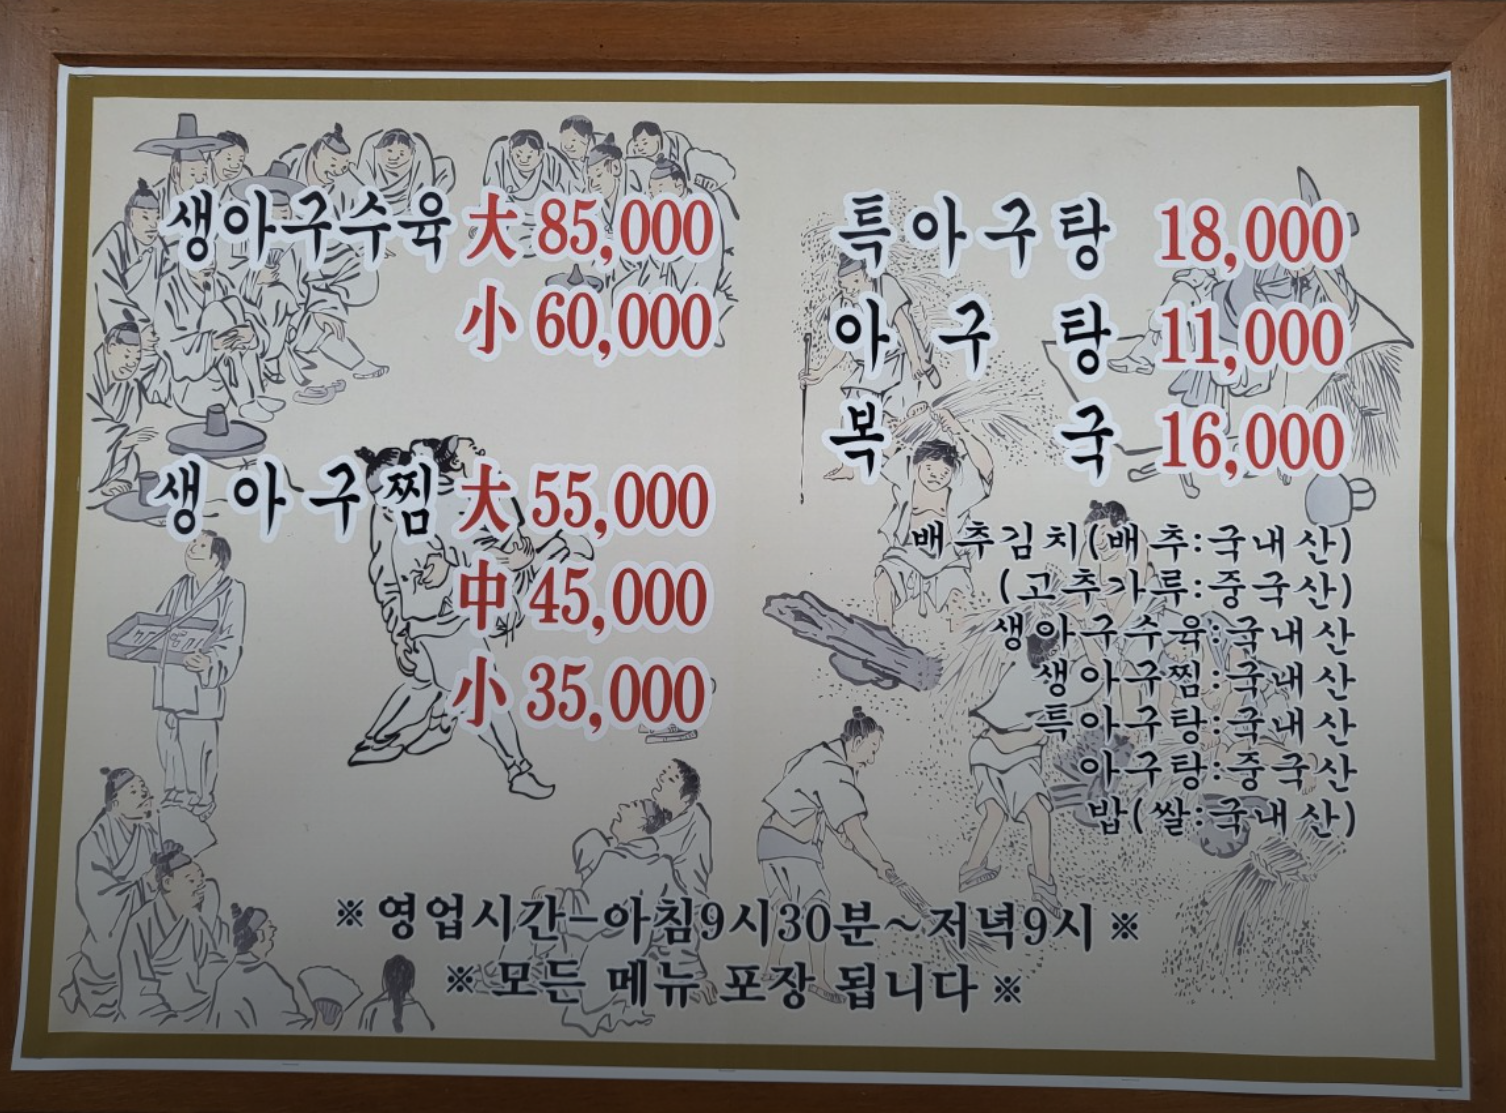 생아구수육 大 85,000
小 60,000
생아구찜 大 55,000
中 45,000
小 35,000
특아구탕 18,000
아구탕 11,000
복국 16,000
배추김치(배추:국내산)
(고추가루:중국산)
생아구수육:국내산
생아구찜:국내산
특아구탕:국내산
아구탕:중국산
밥(쌀:국내산)
※영업시간-아침9시30분~저녁9시※
※모든 메뉴 포장 됩니다※